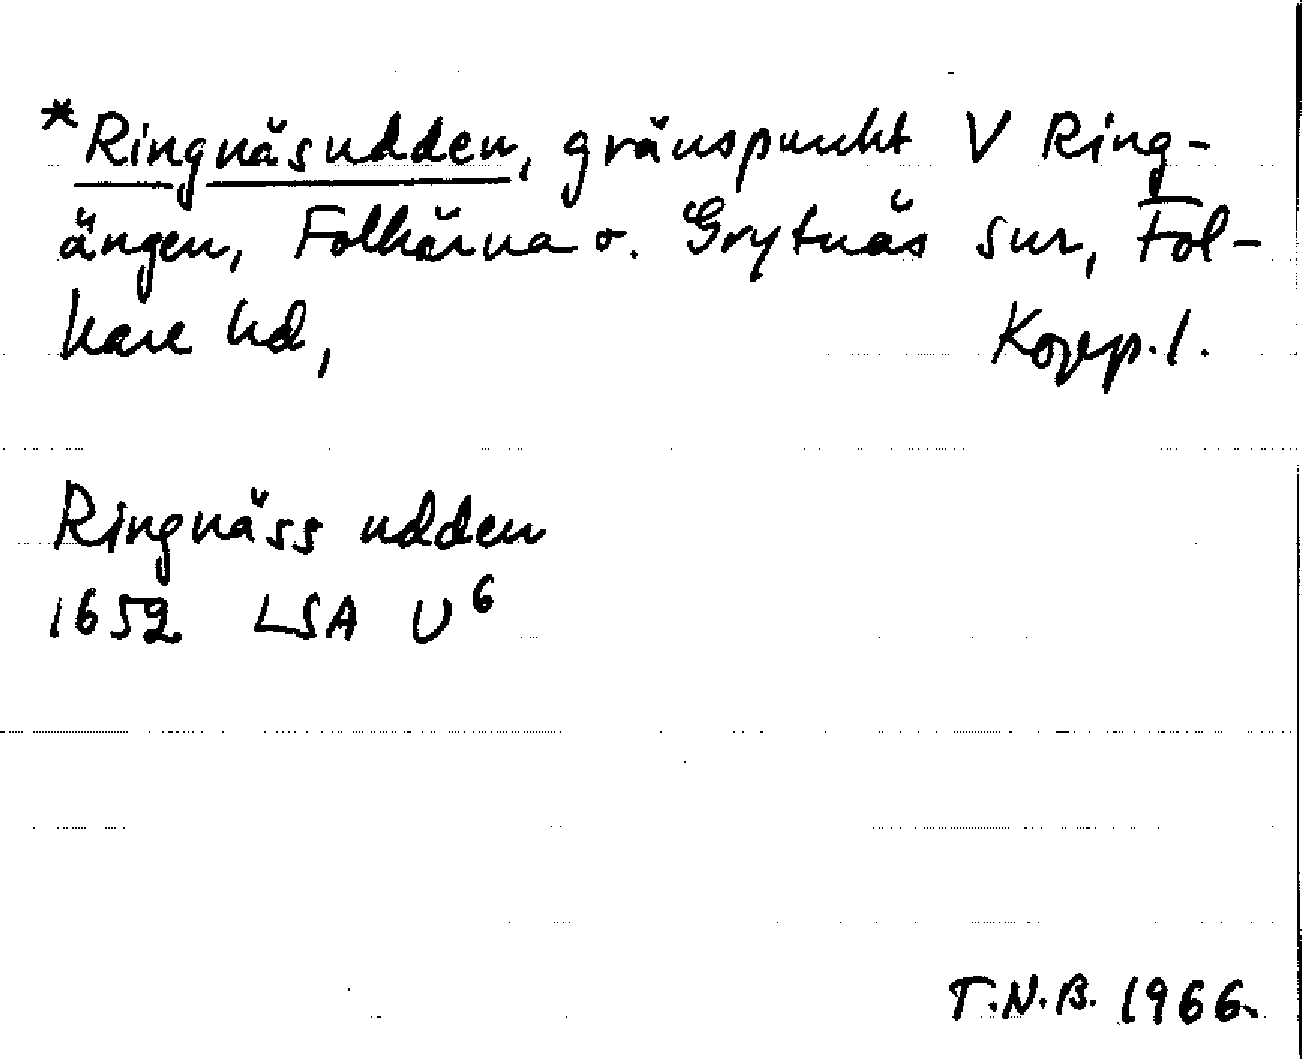 *Ringnäsudden, gränspunkt V Ring-
ängen, Folkärna o. Grytnäs snr, Fol-
kare hd, Kopp. l.
Ringnäss udden
1652 LSA U⁶
T.N.B. 1966.